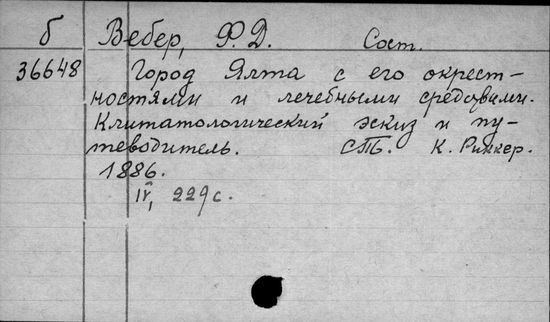 б Вебер, Ф. Д. Сост.
36648 Город Ялта с его окрест-
ностями и лечебными средствами.
Климатологический эскиз и пу-
теводитель. СПб. К. Риккер.
1886.
IV, 229 с.